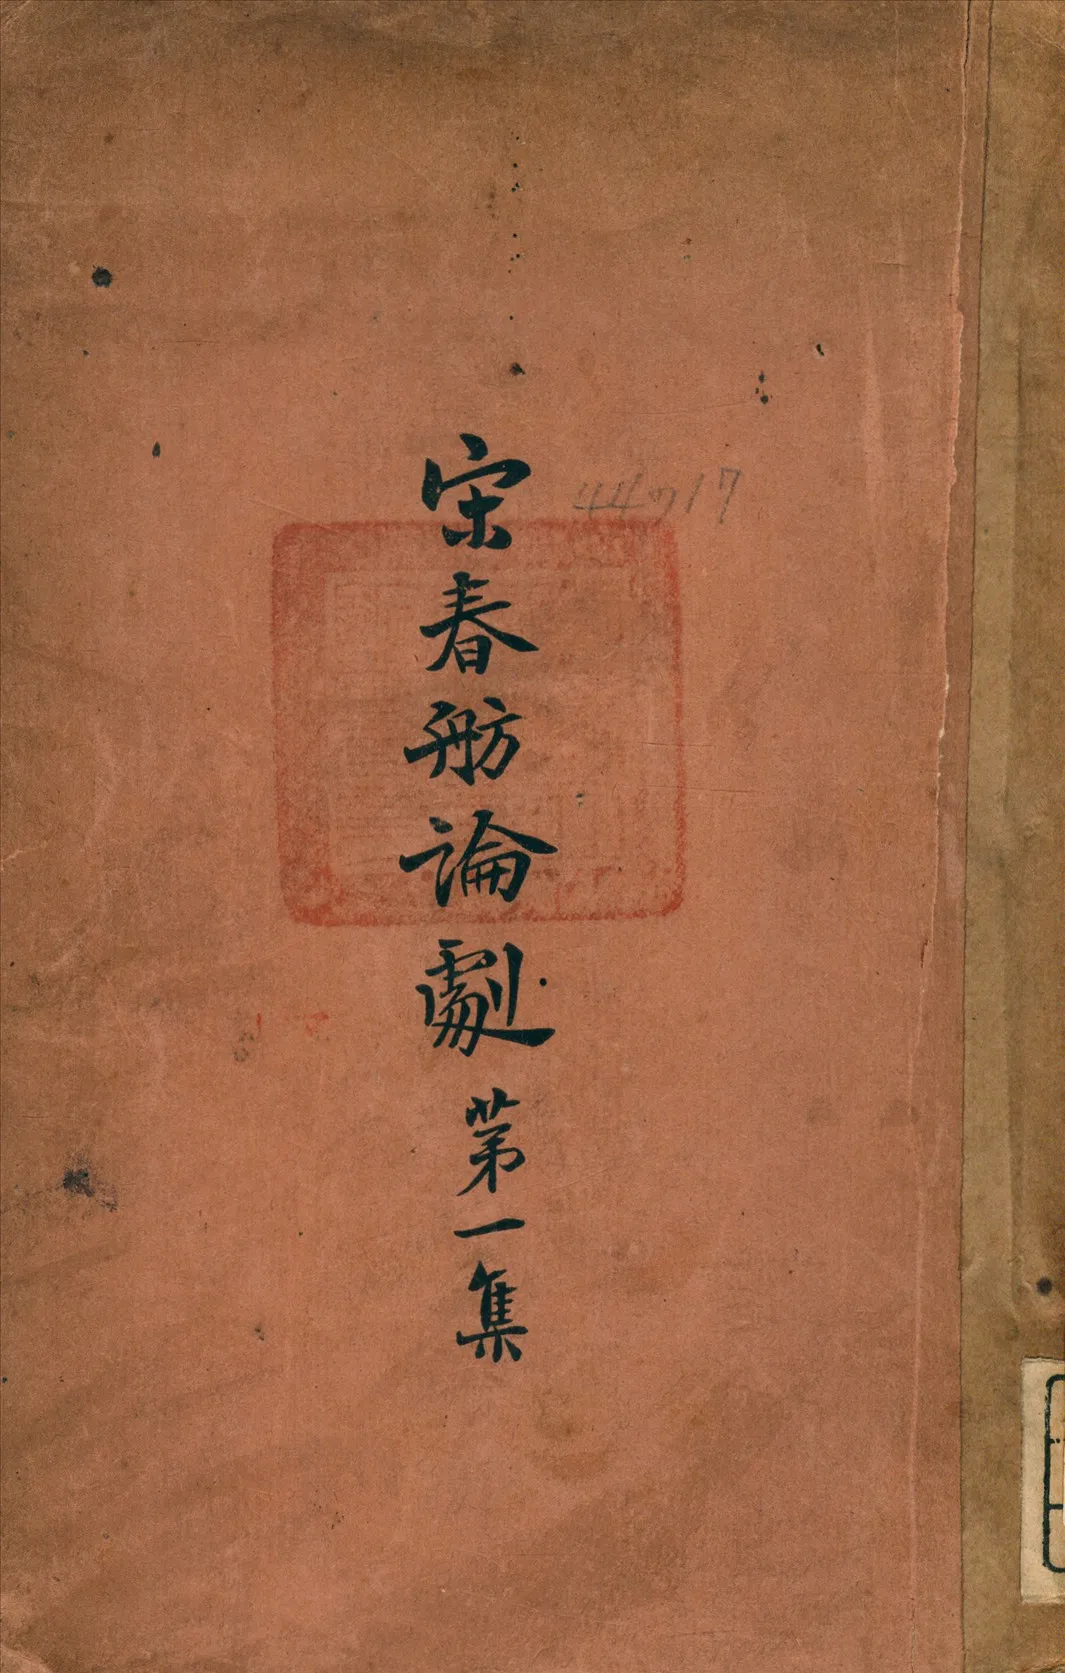 宋春舫論劇 第一集